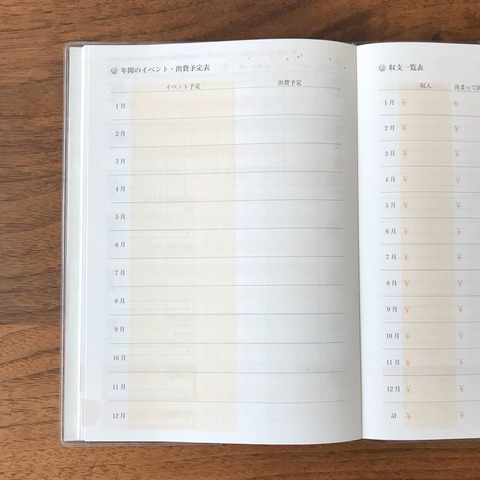 年間のイベント・出費予定表
イベント予定 出費予定
1月
2月
3月
4月
5月
6月
7月
8月
9月
10月
11月
12月
収支一覧表
収入 決まって出
1月 ¥ ¥
2月 ¥ ¥
3月 ¥ ¥
4月 ¥ ¥
5月 ¥ ¥
6月 ¥ ¥
7月 ¥ ¥
8月 ¥ ¥
9月 ¥ ¥
10月 ¥ ¥
11月 ¥ ¥
12月 ¥ ¥
計 ¥ ¥